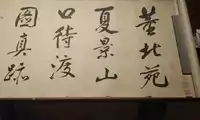 董北苑
夏景山
口待渡
圖真跡